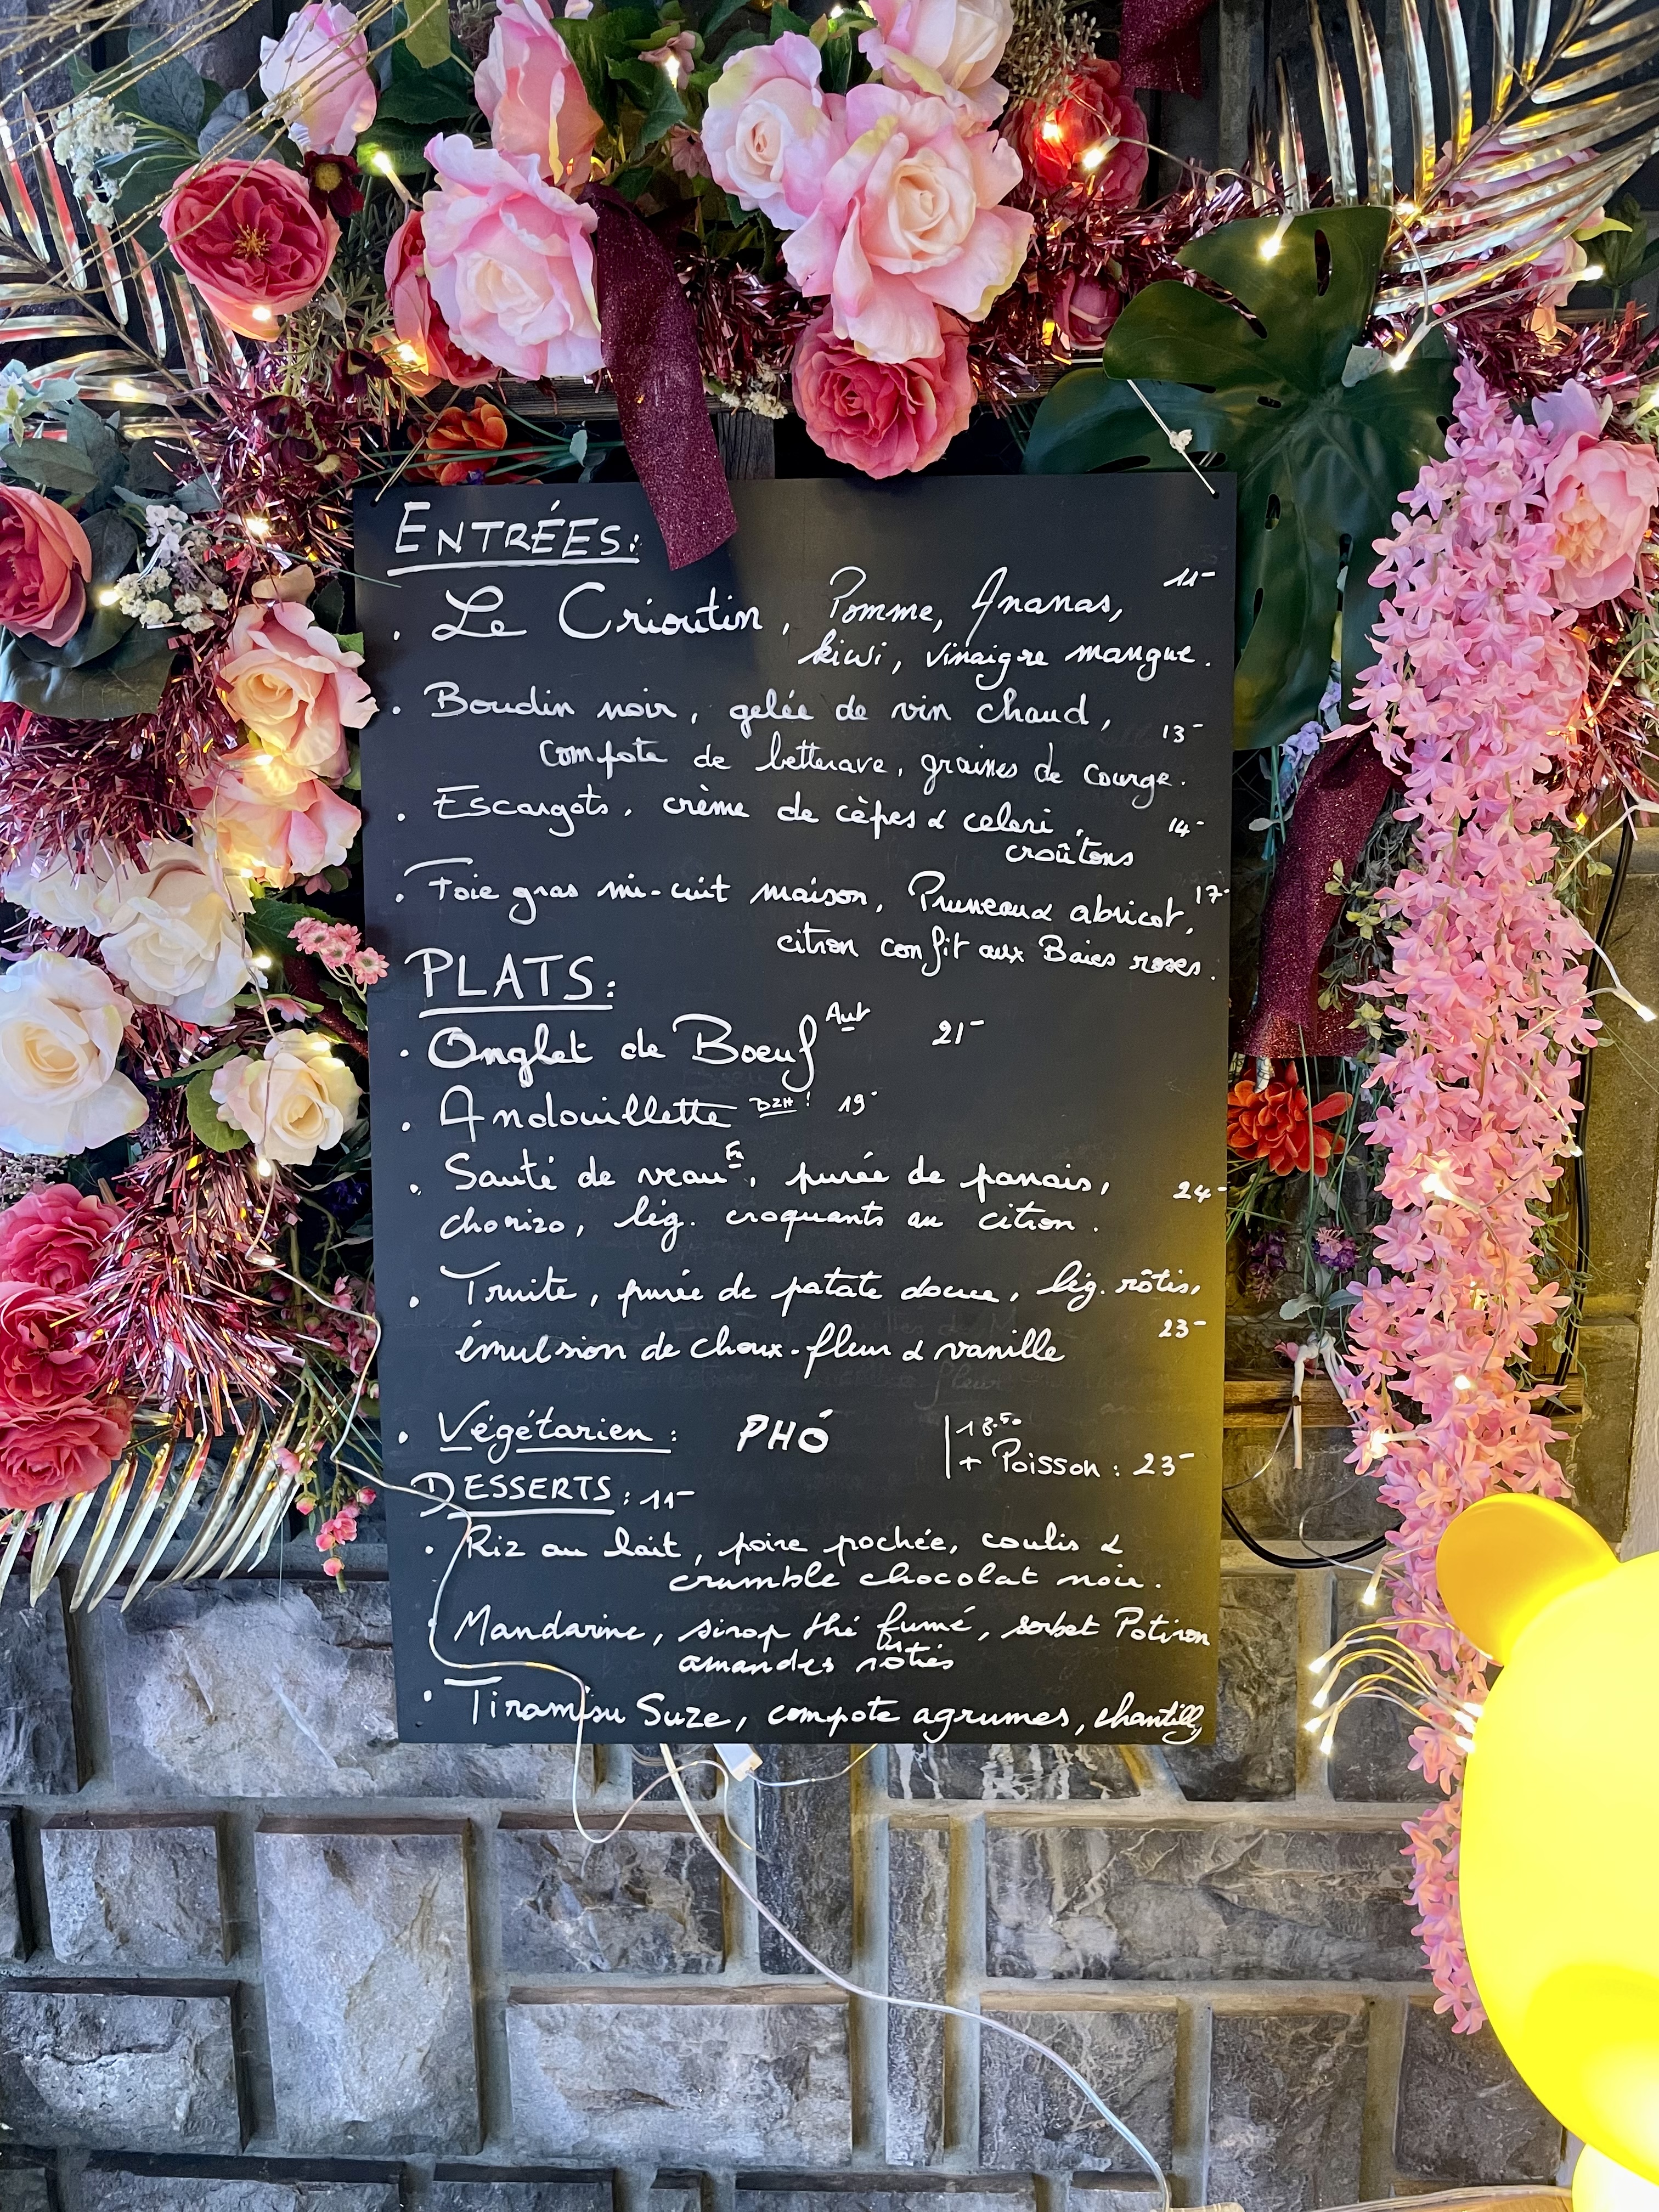 ENTRÉES:
. Le Crioutin, Pomme, Ananas, 11-
kiwi, vinaigre mangue.
. Boudin noir, gelée de vin chaud, 13-
compote de betterave, graines de courge.
. Escargots, crème de cèpes & celeri, 14-
croûtons
. Foie gras mi-cuit maison, Pruneaux abricot, 17-
citron confit aux Baies roses.
PLATS:
. Onglet de Boeuf Aut 21-
. Andouillette DZH! 19-
. Sauté de veau Fr, purée de panais, 24-
chorizo, lég. croquants au citron.
. Truite, purée de patate douce, lég. rôtis,
émulsion de choux-fleur & vanille 23-
. Végétarien: PHÓ 18.50
+ Poisson: 23-
DESSERTS: 11-
. Riz au lait, poire pochée, coulis &
crumble chocolat noir.
. Mandarine, sirop thé fumé, sorbet Potiron
amandes rôties
. Tiramisu Suze, compote agrumes, chantilly